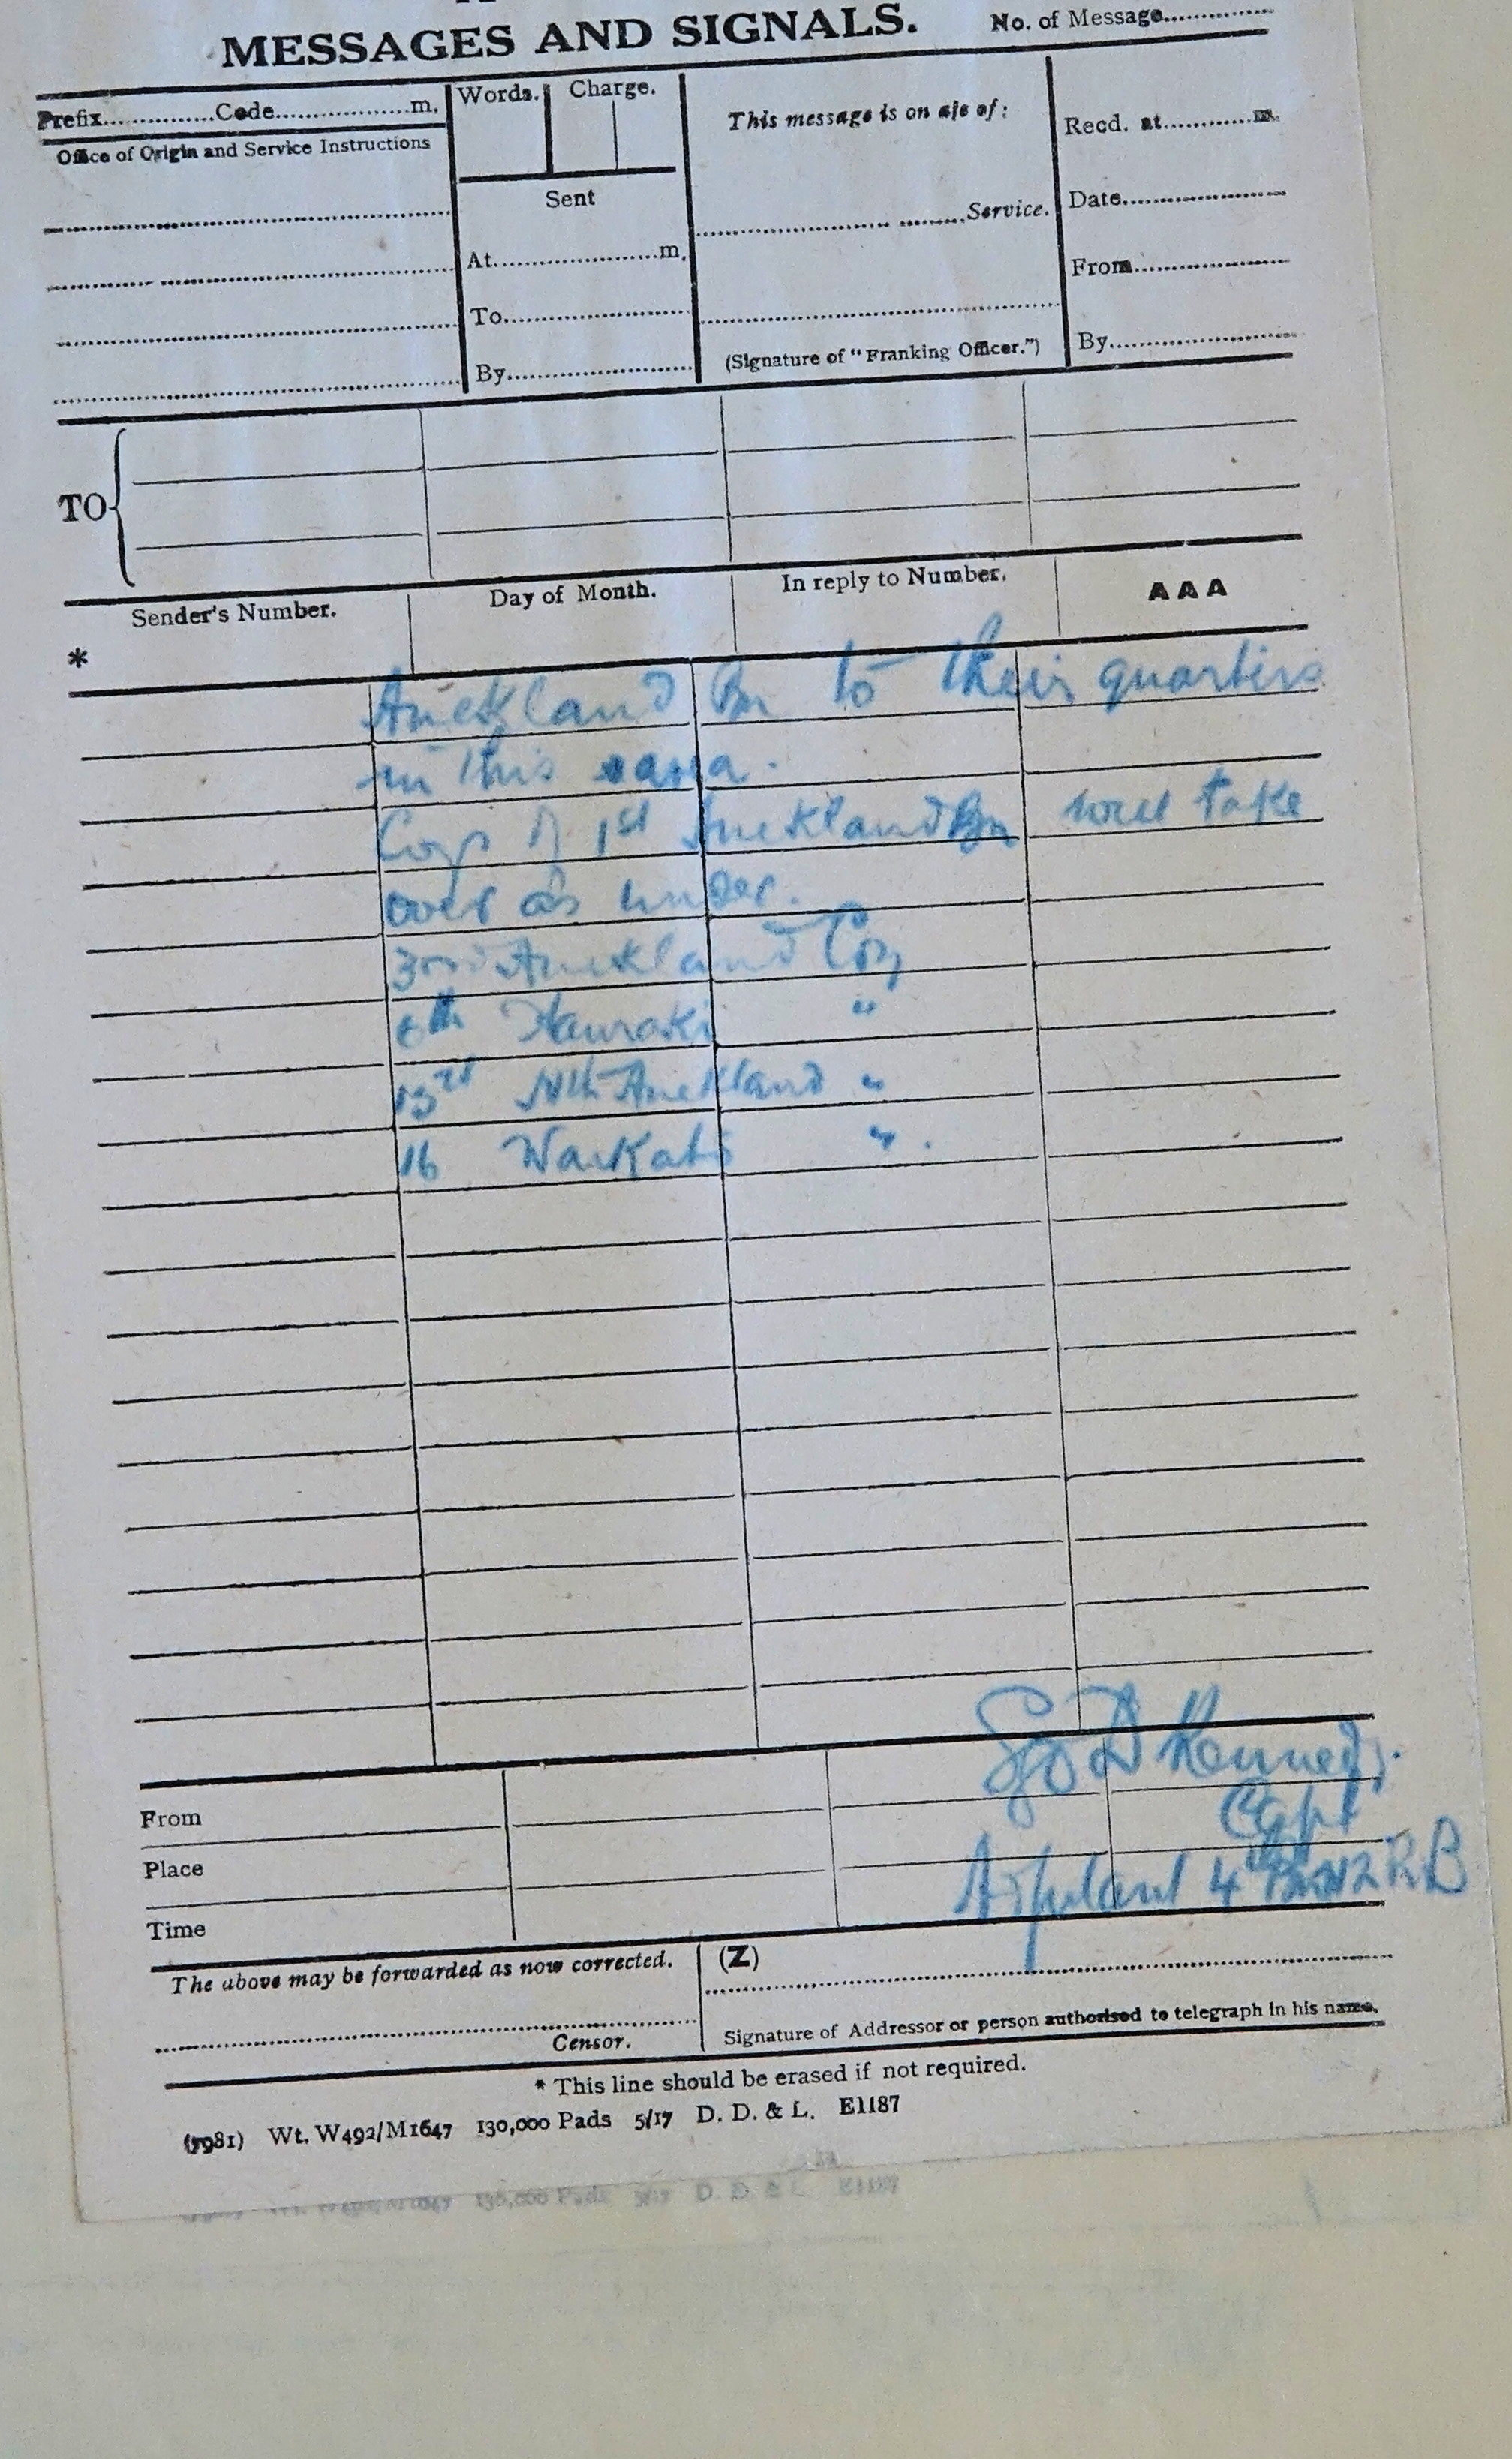 MESSAGES AND SIGNALS. No. of Message
Prefix Code m. Words. Charge. This message is on a/c of: Recd. at m.
Office of Origin and Service Instructions
Sent
Service. Date
At m.
From
To
By (Signature of "Franking Officer.") By
TO
Sender's Number. Day of Month. In reply to Number. AAA
*
Auckland Bn to their quarters
in this area.
Coys of 1st Auckland Bn will take
over as under.
3rd Auckland Coy
6th Hauraki "
15th Nth Auckland "
16 Waikato " .
Geo D Kennedy.
Capt
Adjutant 4th Bn NZRB
From
Place
Time
The above may be forwarded as now corrected. (Z)
Censor. Signature of Addressor or person authorised to telegraph in his name.
* This line should be erased if not required.
(7981) Wt. W492/M1647 130,000 Pads 5/17 D. D. & L. E1187
130,000 Pads 5/17 D. D. & L. E1187